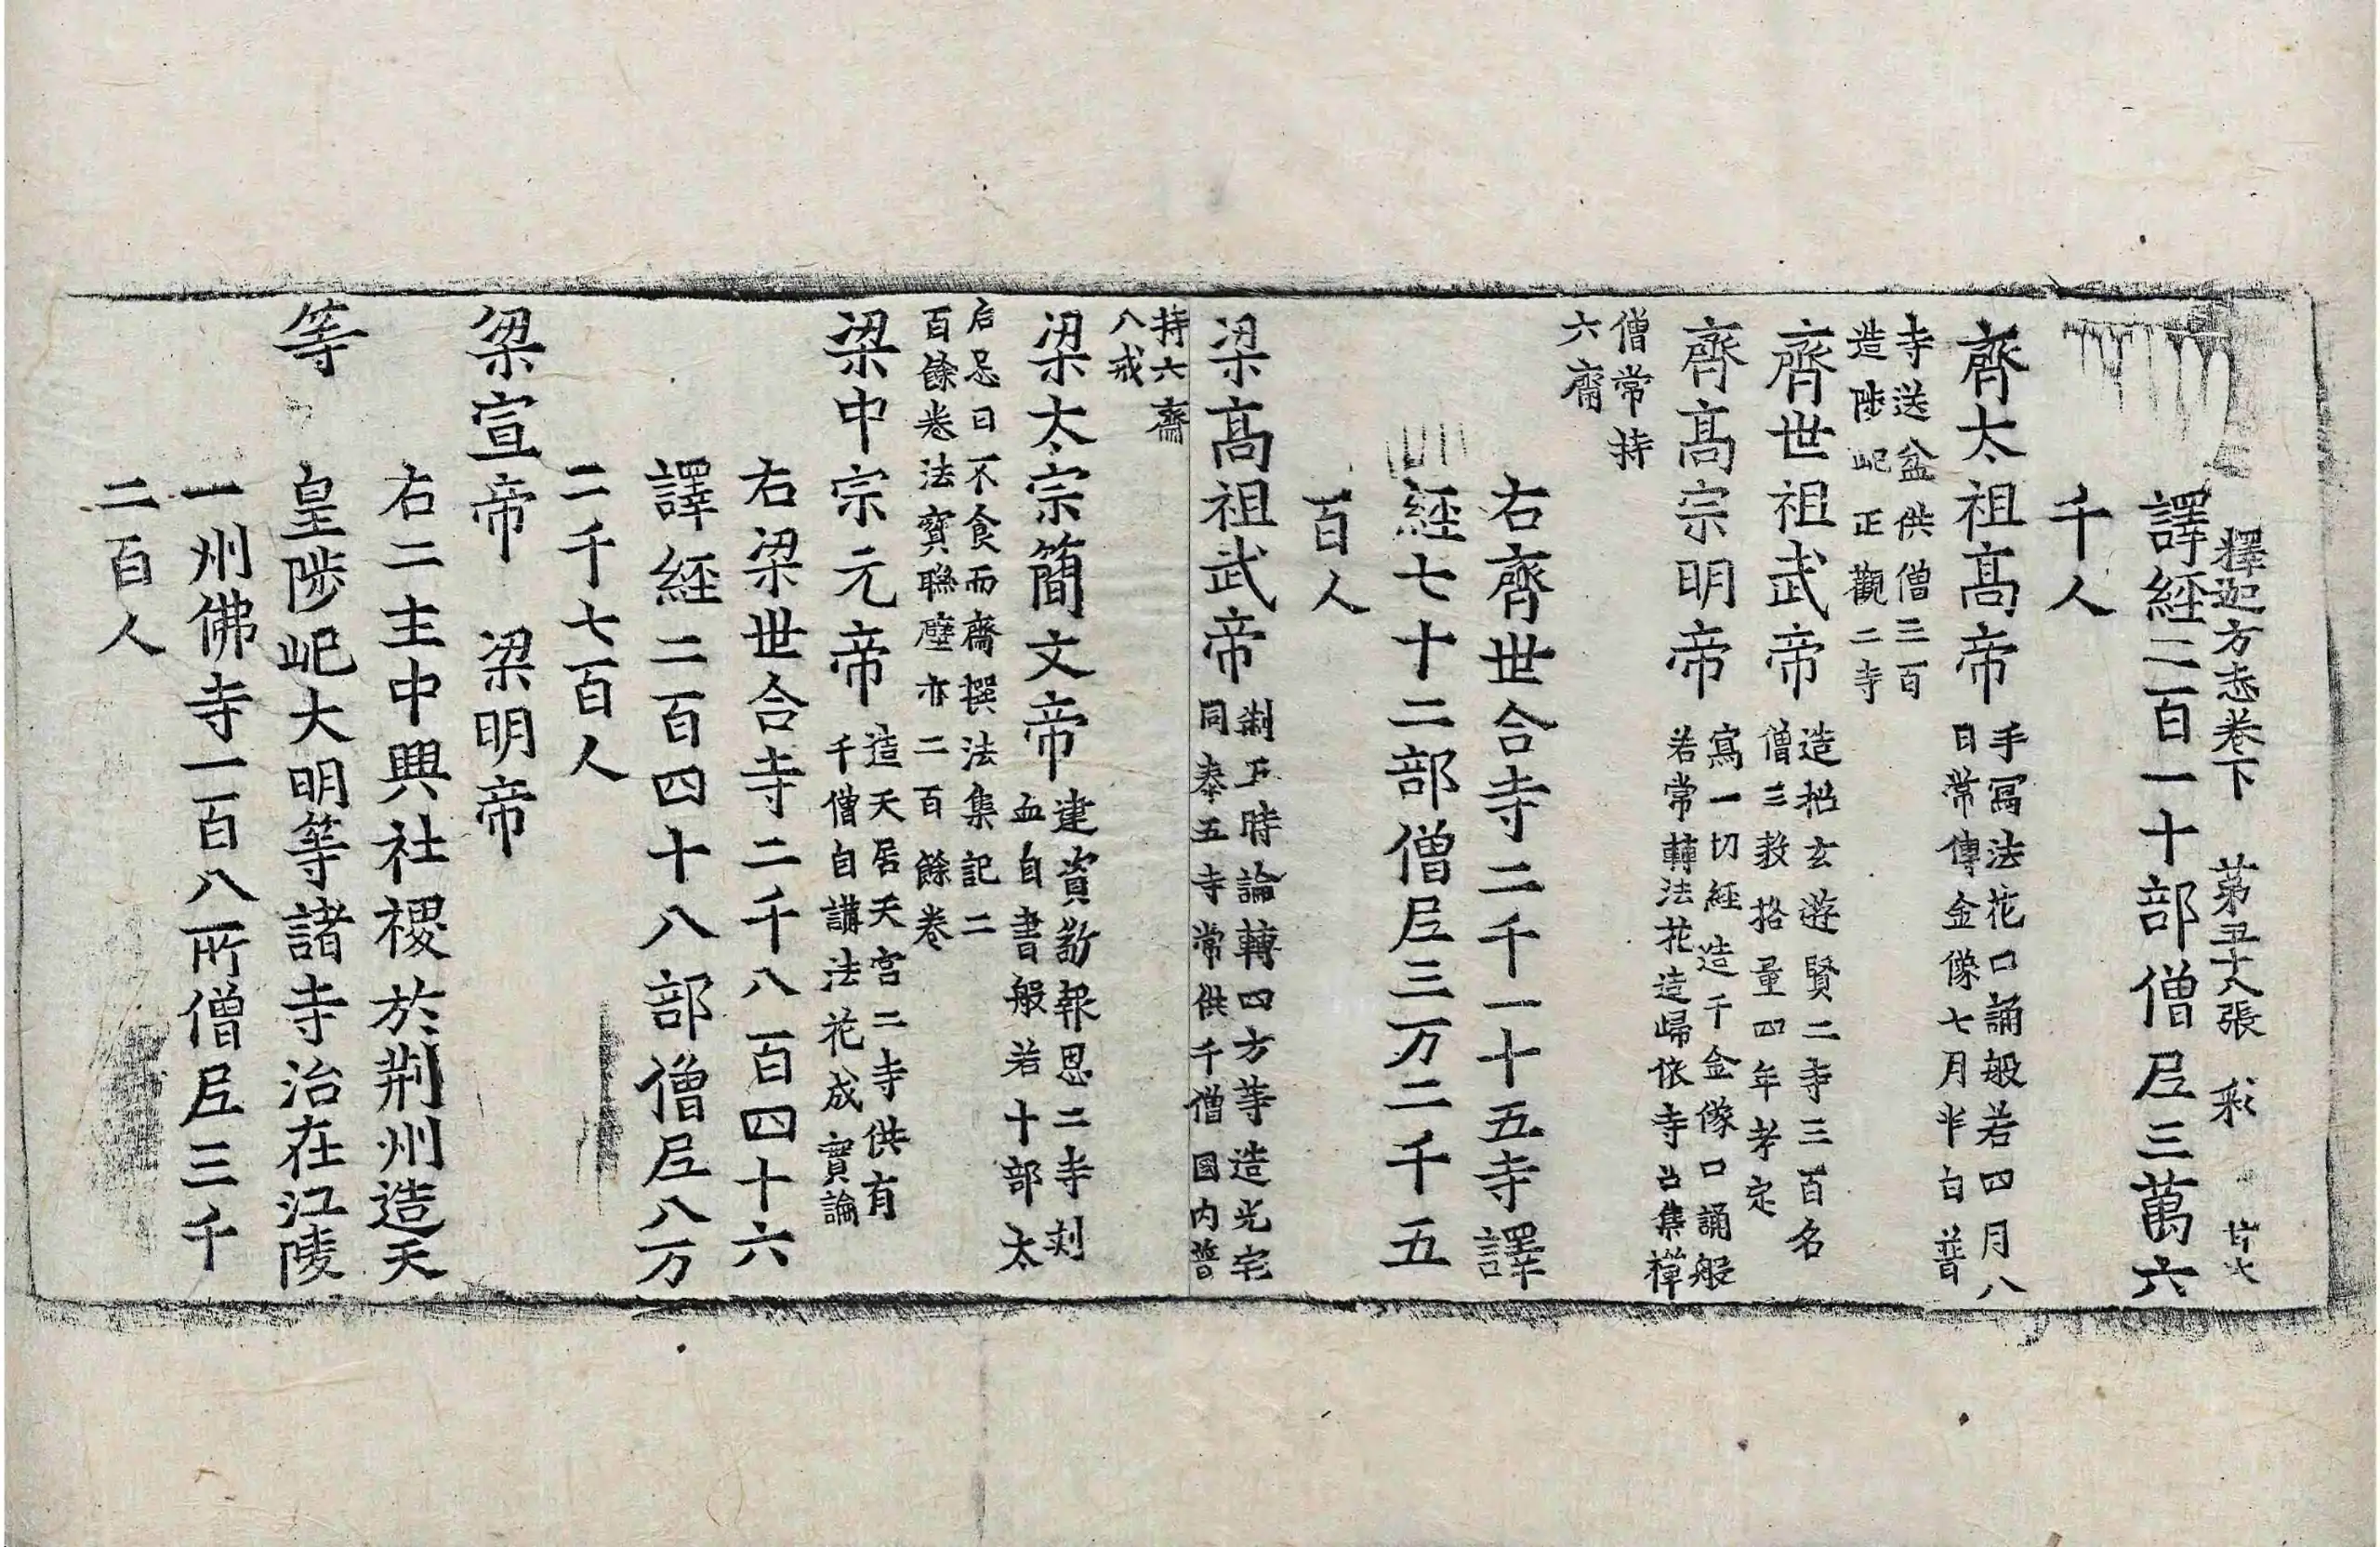 釋迦方志卷下 第五十八張 彩
譯經二百一十部僧尼三萬六
千人
齊太祖高帝
手寫法花口誦般若四月八
日常傳金像七月半白普
寺送盆供僧三百
造陟屺正觀二寺
齊世祖武帝
造招玄遊賢二寺三百名
僧三教格量四年考定
齊高宗明帝
寫一切經造千金像口誦般
若常轉法花造歸依寺召集禪
僧常持
六齋
右齊世合寺二千一十五寺譯
經七十二部僧尼三万二千五
百人
梁高祖武帝
制五時論轉四方等造光宅
同泰五寺常供千僧国内普
持六齋
八戒
梁太宗簡文帝
建資敬報恩二寺刺
血自書般若十部太
后忌日不食而齋撰法集記二
百餘卷法寳聯璧亦二百餘卷
梁中宗元帝
造天居天宮二寺供有
千僧自講法花成實論
右梁世合寺二千八百四十六
譯經二百四十八部僧尼八万
二千七百人
梁宣帝 梁明帝
右二主中興社稷於荆州造天
等 皇陟屺大明等諸寺治在江陵
一州佛寺一百八所僧尼三千
二百人